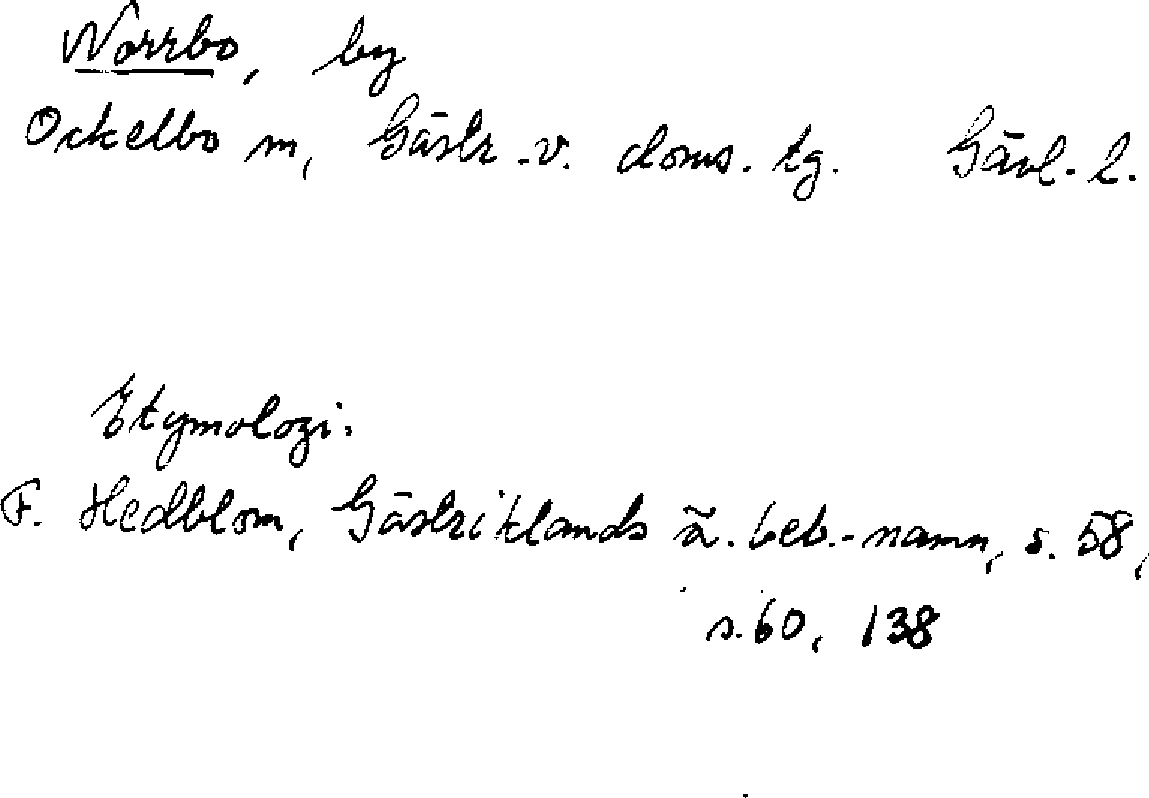 Norrbo, by
Ockelbo sn, Gästr.v. doms. tg. Gävl. l.
Etymologi.
F. Hedblom, Gästriklands ä. beb.-namn, s. 58,
s. 60, 138